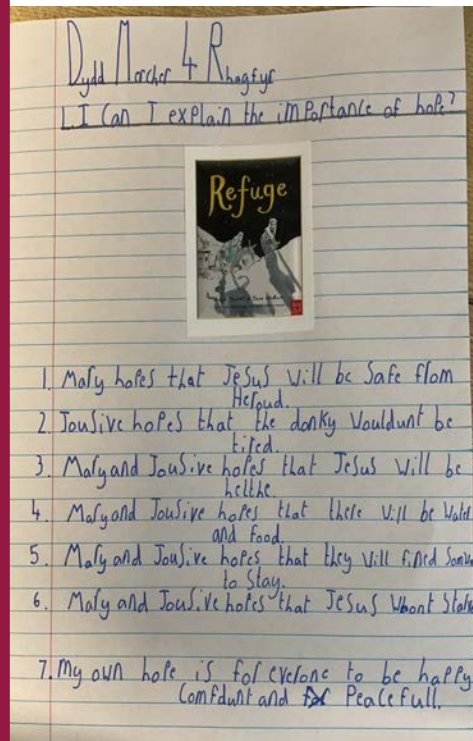 Dydd Mercher 4 Rhagfyr
L.I Can I explain the importance of hope?
Refuge
1. Mary hopes that Jesus will be safe from
Heroud.
2. Jousive hopes that the donky wouldunt be
tired.
3. Mary and Jousive hopes that Jesus will be
helthe.
4. Mary and Jousive hopes that there will be water
and food.
5. Mary and Jousive hopes that they will fined
to stay.
6. Mary and Jousive hopes that Jesus wont
7. My own hope is for everone to be happy
Comfdunt and Peacefull.